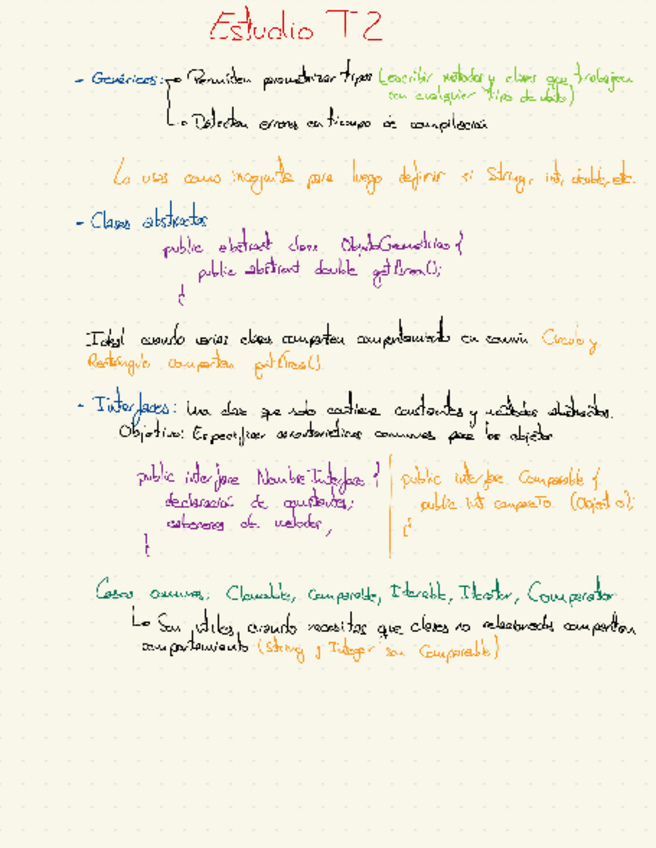 Estudio T2
- Genéricos: Permiten parametrizar tipos (escribir métodos y clases que trabajen
con cualquier tipo de dato)
Detectan errores en tiempo de compilación
Lo usas como incognita para luego definir si String, int, double, etc.
- Clases abstractas
public abstract class ObjetoGeometrico {
public abstract double getArea();
}
Ideal cuando varias clases comparten comportamiento en común Circulo y
Rectangulo comparten getArea()
- Interfaces: Una clase que solo contiene constantes y métodos abstractos.
Objetivo: Especificar características comunes para los objetos
public interface NombreInterface {
declaración de constantes;
cabeceras de metodos;
}
public interface Comparable {
public int compareTo (Object o);
}
Casos comunes: Cloneable, Comparable, Iterable, Iterator, Comparator
Son útiles cuando necesitas que clases no relacionadas comparten
comportamiento (String y Integer son Comparable)